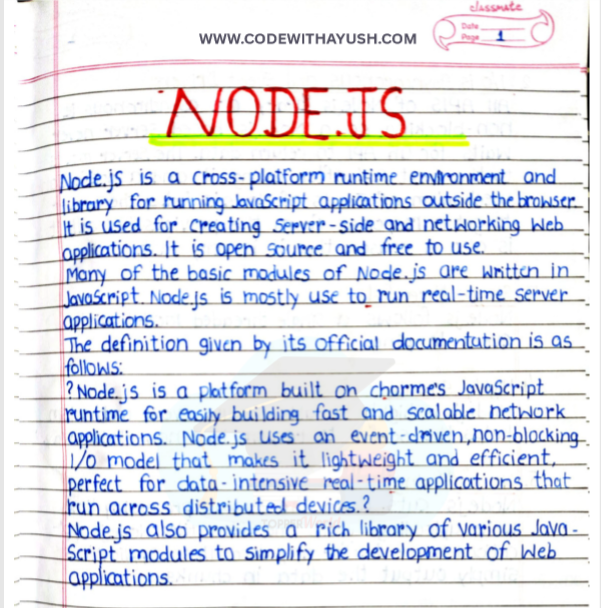 classmate
Date
Page 1
WWW.CODEWITHAYUSH.COM
NODE.JS
Node.js is a cross-platform runtime environment and
library for running JavaScript applications outside the browser.
It is used for creating Server-side and networking web
applications. It is open source and free to use.
Many of the basic modules of Node.js are written in
JavaScript. Node.js is mostly use to run real-time server
applications.
The definition given by its official documentation is as
follows:
?Node.js is a platform built on chorme's JavaScript
runtime for easily building fast and scalable network
applications. Node.js uses an event-driven, non-blocking
I/O model that makes it lightweight and efficient,
perfect for data-intensive real-time applications that
run across distributed devices.?
Node.js also provides a rich library of various Java-
Script modules to simplify the development of web
applications.